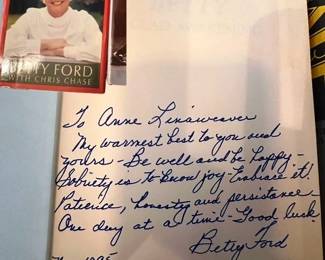 BETTY FORD
WITH CHRIS CHASE
To Anne Linaweaver
My warmest best to you and
yours - Be well and be happy -
Sobriety is to know joy - Embrace it!
Patience, honesty and persistance
One day at a time - Good luck
Betty Ford